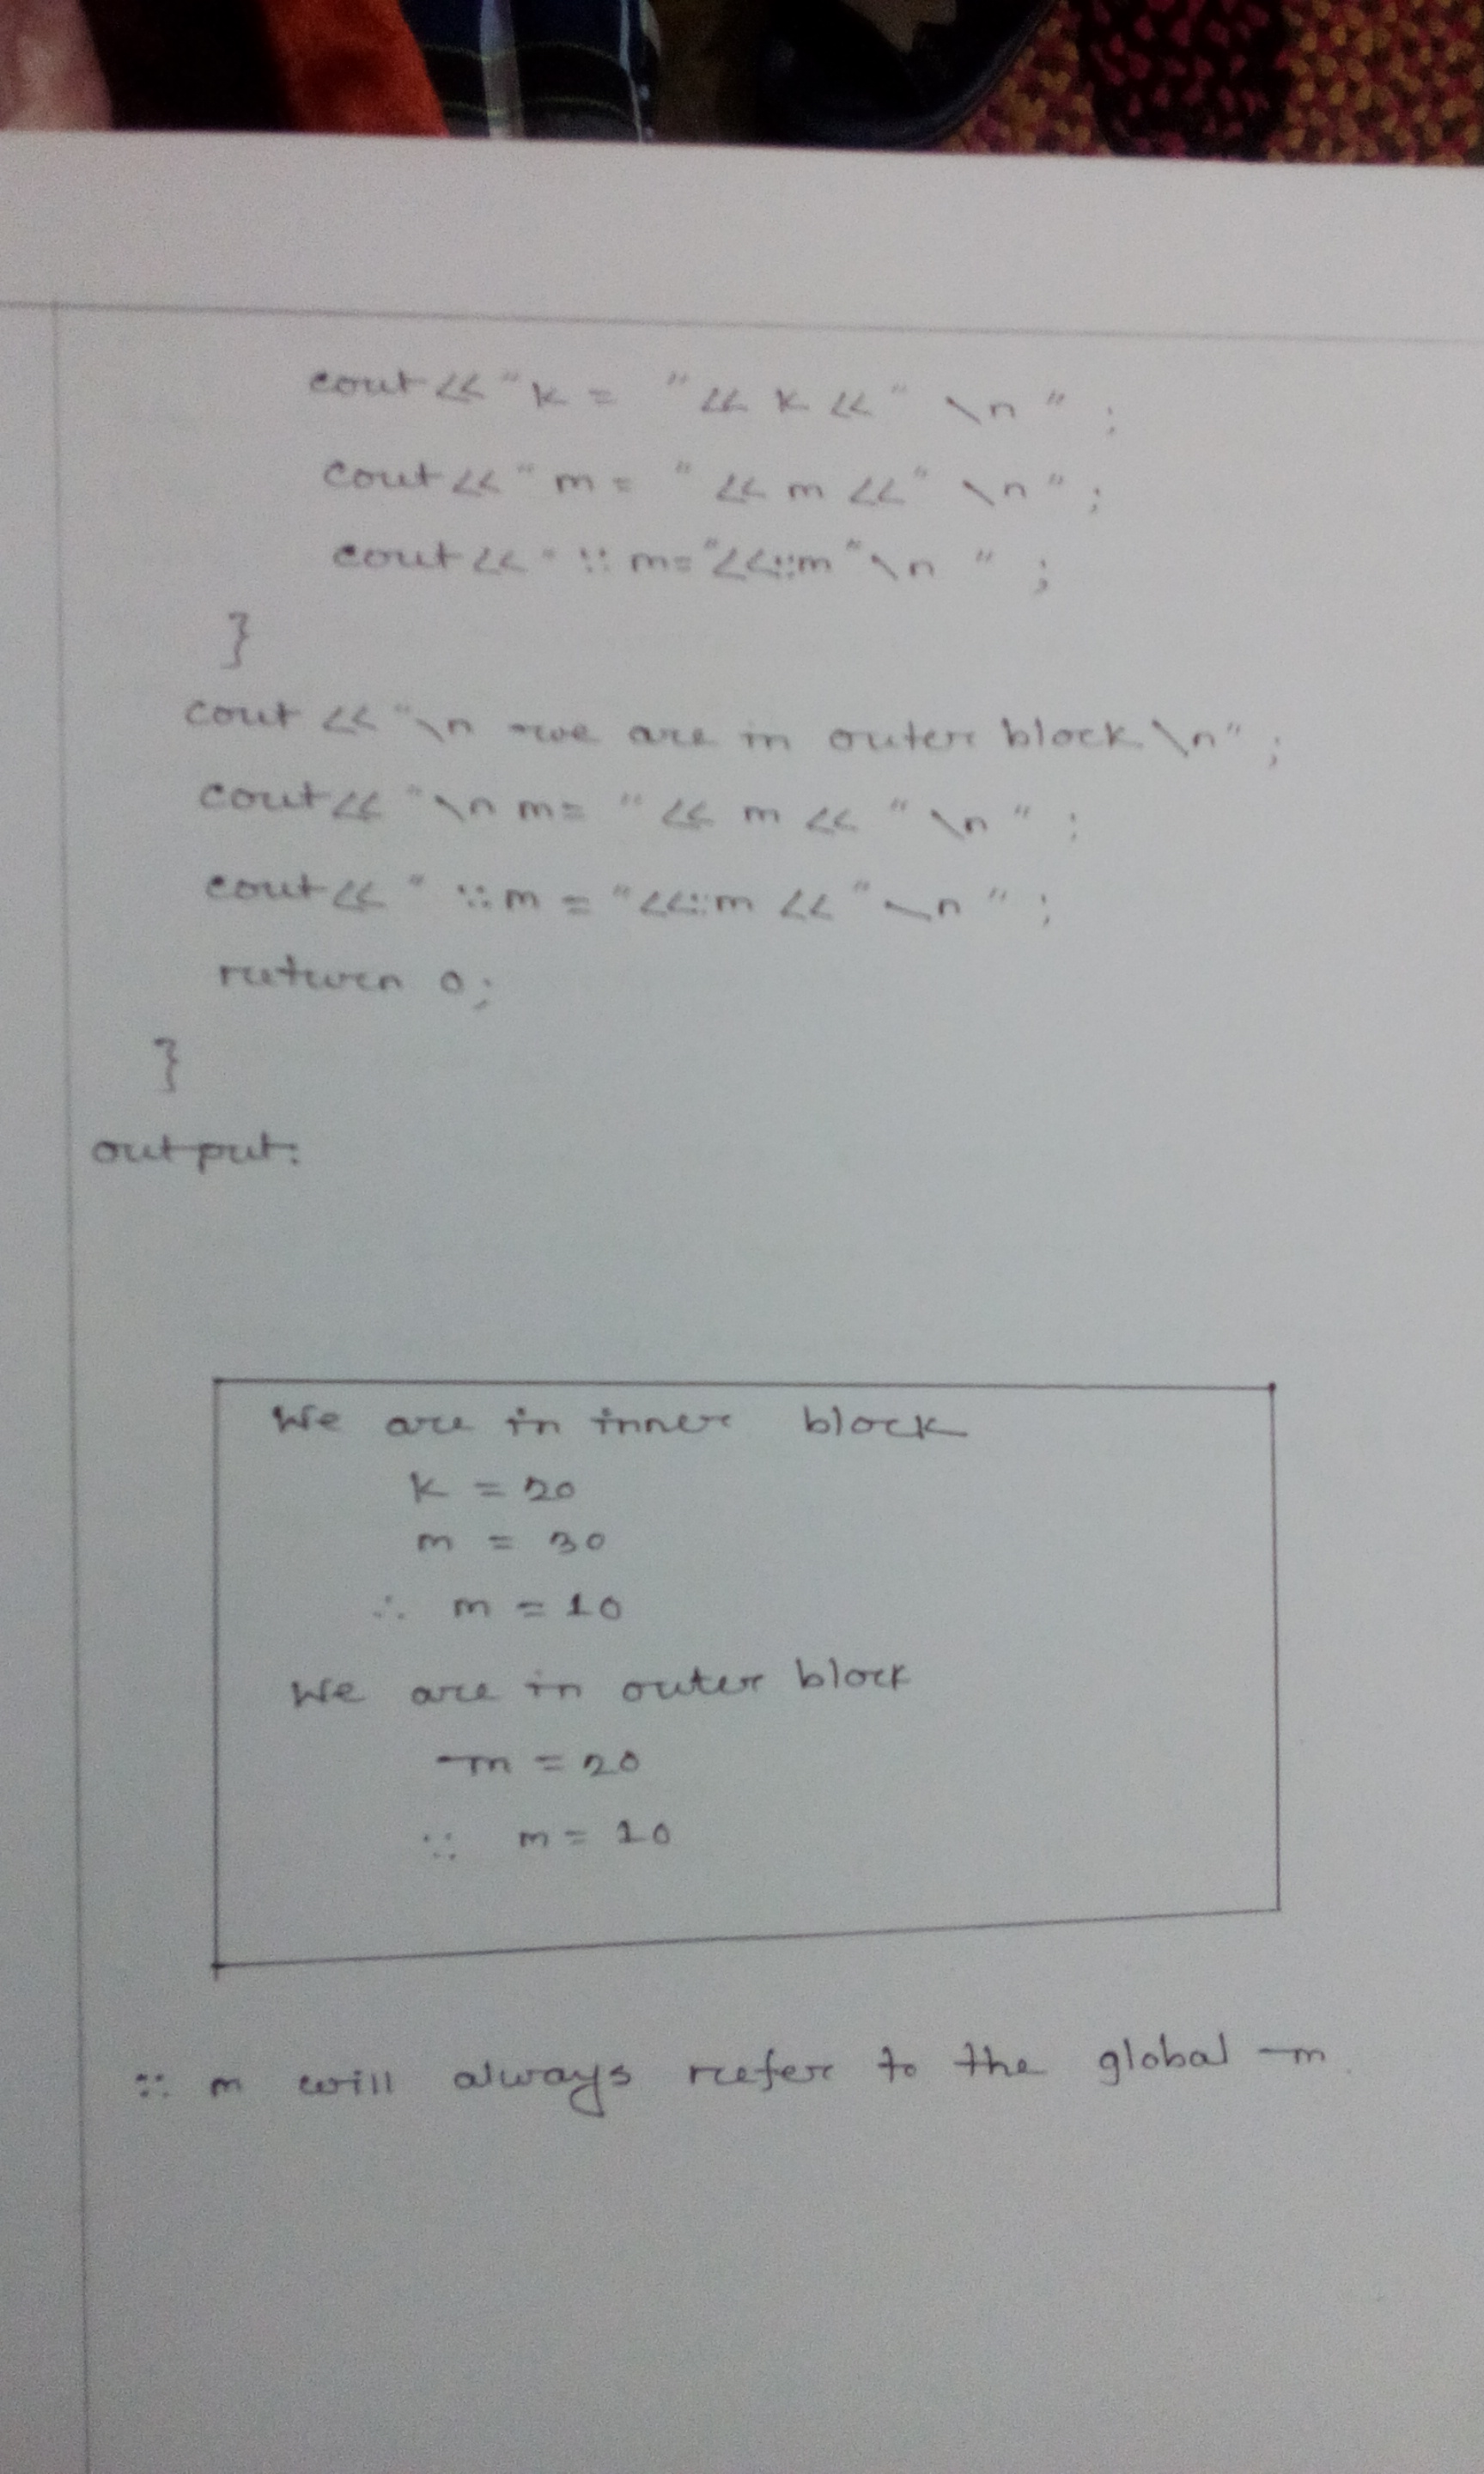 cout << "k = " << k << " \n " ;
cout << " m = " << m << " \n " ;
cout << " :: m= "<<::m "\n " ;
}
cout << "\n we are in outer block \n" ;
cout << "\n m= " << m << " \n " ;
cout << " ::m = "<<::m << "\n " ;
return 0;
}
output:
We are in inner block
k = 20
m = 30
∴ m = 10
We are in outer block
m = 20
:: m = 10
:: m will always refer to the global m.